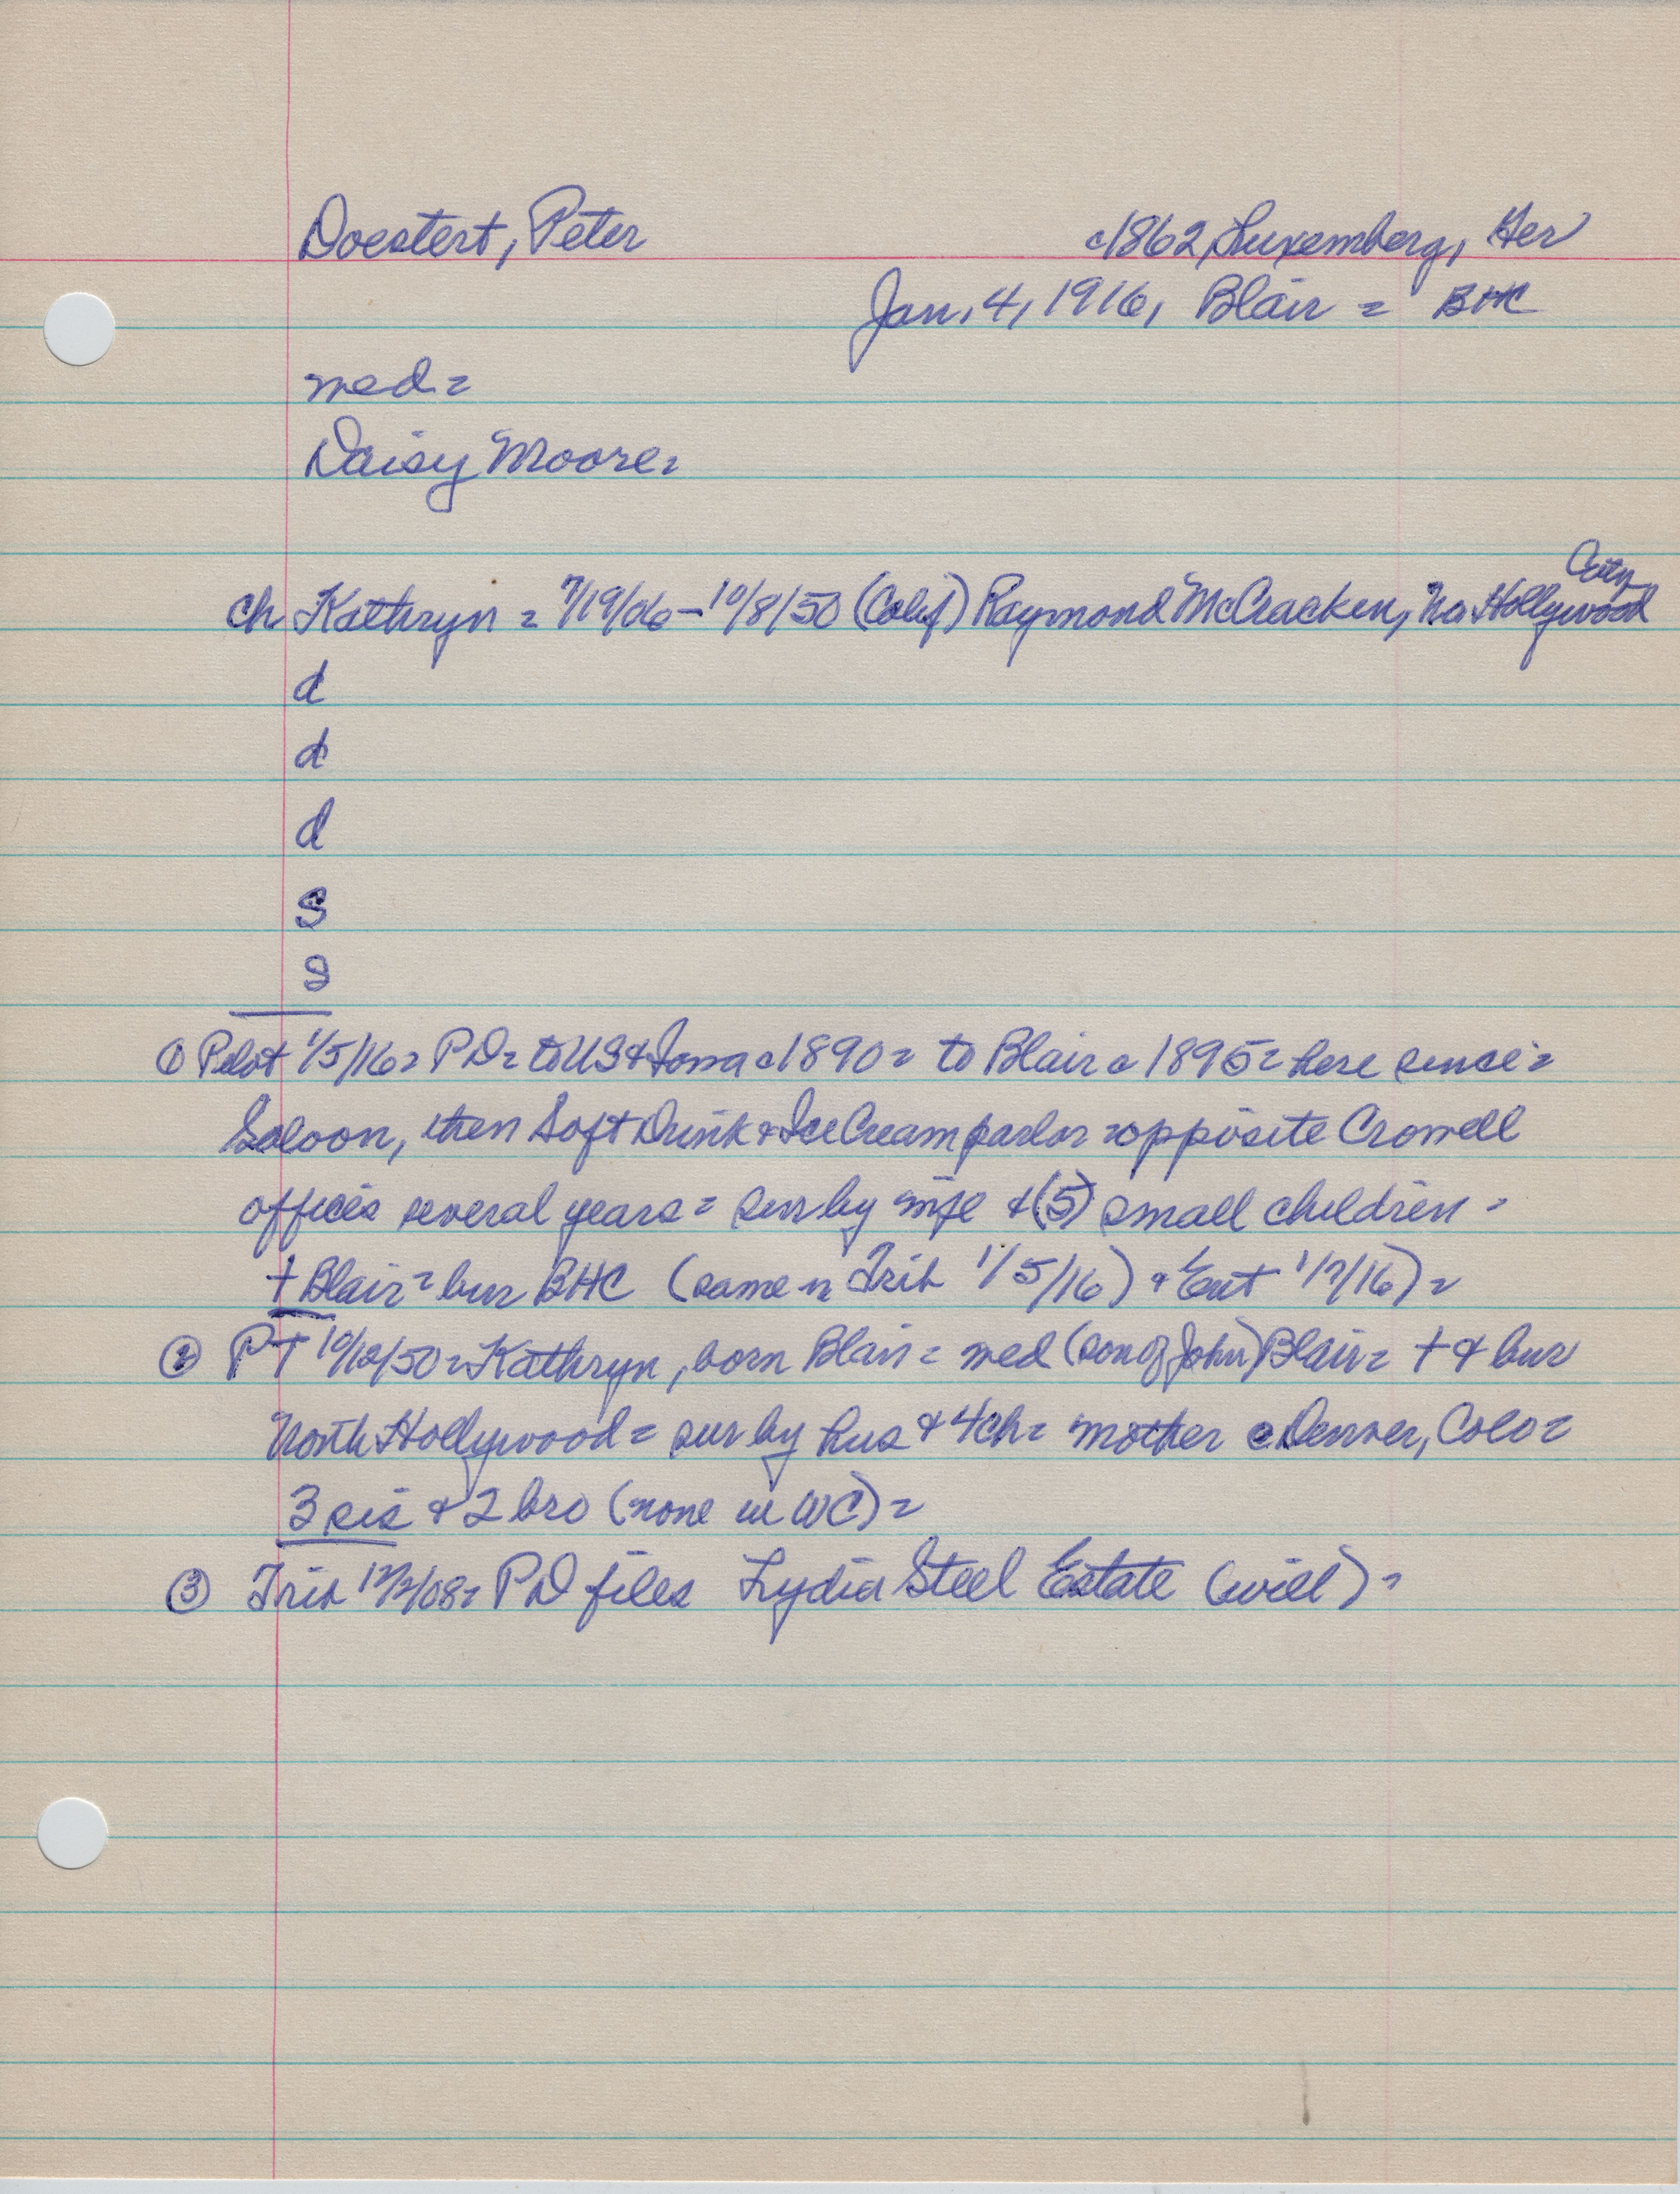 Doestert, Peter c1862, Luxemberg, Ger
Jan. 4, 1916, Blair = BHC
med =
Daisy Moore =
City
ch Kathryn = 7/19/06 - 10/8/50 (Calif) Raymond McCracken, No. Hollywood
d
d
d
S
S
① Pilot 1/5/16 = PD = to US & Iowa c1890 = to Blair c 1895 = here since =
Saloon, then Soft Drink & Ice Cream parlor = opposite Crowell
offices several years = sur by wife & (5) small children =
+ Blair = bur BHC (same in Trib 1/5/16) & Ent 1/7/16) =
② PT 10/12/50 = Kathryn, born Blair = med (son of John) Blair = + & bur
North Hollywood = sur by hus & 4ch = mother c Denver, Colo =
3 sis & 2 bro (none in WC) =
③ Trib 12/2/08 = PD files Lydia Steel Estate (will) =